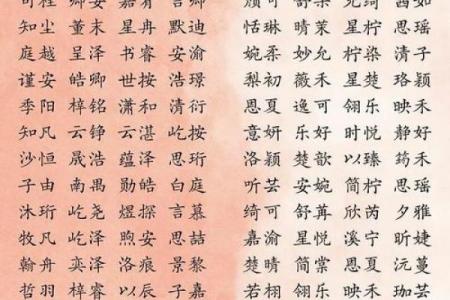 知尘 董末 星冉 默迪 恬琳 晴茉 星柠 思瑶
庭越 呈泽 书睿 安渝 婉柔 妙允 柠染 清子
谨安 皓卿 世按 浩璟 梨初 薇禾 星楚 珞颖
季阳 梓铭 潇和 清衍 思夏 逸可 翎乐 映禾
知凡 云铮 云湛 屹按 意妍 乐好 时悦 静好
沙恒 晟浩 蕴泽 思珩 洛颖 楚歆 以臻 筠禾
子由 南禺 勋皓 白庭 听芸 安婉 简柠 思瑶
沐珩 屹尧 煜探 言慕 绮可 舒苒 欣芮 夕雅
牧凡 屹泽 煦安 思喆 嘉渝 星悦 溪宁 映婕
翰舟 奕泽 洛痕 景黎 楚晴 简棠 思夏 沅蔓
哲羽 梓睿 以辰